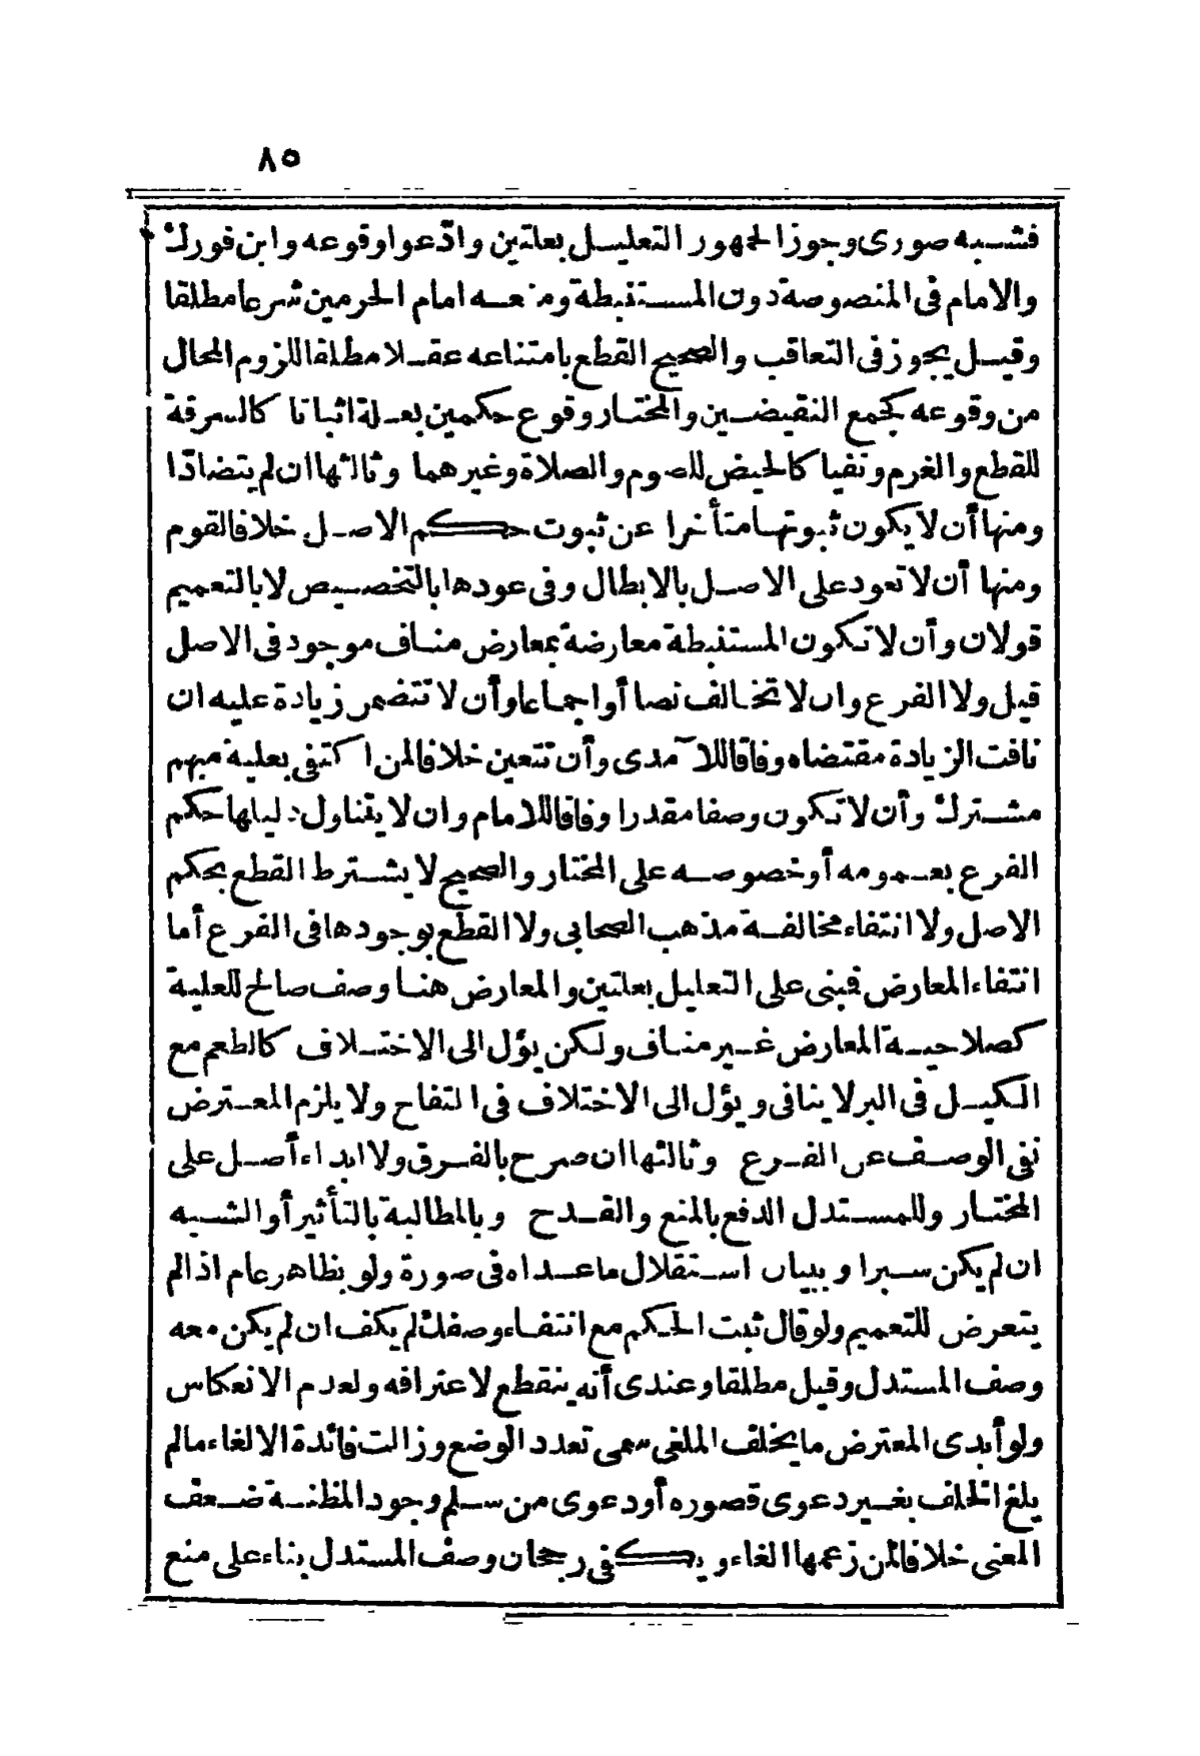 ٨٥
فشبه صورى وجوز الجمهور التعليل بعلتين وادّعوا وقوعه وابن فورك
والامام فى المنصوصة دون المستنبطة ومنعه امام الحرمين شرعا مطلقا
وقيل يجوز فى التعاقب والصحيح القطع بامتناعه عقلا مطلقا للزوم المحال
من وقوعه كجمع النقيضين والمختار وقوع حكمين بعلة اثباتا كالسرقة
للقطع والغرم ونفيا كالحيض للصوم والصلاة وغيرهما وثالثها ان لم يتضادّا
ومنها أن لا يكون ثبوتها متأخرا عن ثبوت حكم الاصل خلافا لقوم
ومنها أن لا تعود على الاصل بالابطال وفى عودها بالتخصيص لا بالتعميم
قولان وأن لا تكون المستنبطة معارضة بمعارض مناف موجود فى الاصل
قيل ولا الفرع وان لا تخالف نصا أو اجماعا وأن لا تتضمن زيادة عليه ان
نافت الزيادة مقتضاه وفاقا للآمدى وأن تتعين خلافا لمن اكتفى بعلية مبهم
مشترك وأن لا تكون وصفا مقدرا وفاقا للامام وان لا يتناول دليلها حكم
الفرع بعمومه أو خصوصه على المختار والصحيح لا يشترط القطع بحكم
الاصل ولا انتفاء مخالفة مذهب الصحابى ولا القطع بوجودها فى الفرع أما
انتفاء المعارض فبنى على التعليل بعلتين والمعارض هنا وصف صالح للعلية
كصلاحية المعارض غير مناف ولكن يؤل الى الاختلاف كالطعم مع
الكيل فى البر لا ينافى ويؤل الى الاختلاف فى التفاح ولا يلزم المعترض
نفى الوصف عن الفرع وثالثها ان صرح بالفرق ولا ابداء أصل على
المختار وللمستدل الدفع بالمنع والقدح وبالمطالبة بالتأثير أو الشبه
ان لم يكن سبرا وببيان استقلال ما عداه فى صورة ولو بظاهر عام اذا لم
يتعرض للتعميم ولو قال ثبت الحكم مع انتفاء وصفك لم يكف ان لم يكن معه
وصف المستدل وقيل مطلقا وعندى أنه ينقطع لاعترافه ولعدم الانعكاس
ولو أبدى المعترض ما يخلف الملغى سمى تعدد الوضع وزالت فائدة الالغاء مالم
يلغ الخلف بغير دعوى قصوره أو دعوى من سلم وجود المظنة ضعف
المعنى خلافا لمن زعمها الغاء ويكفى رجحان وصف المستدل بناء على منع